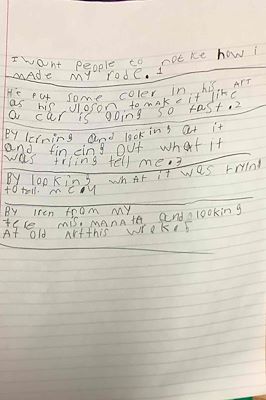 I want people to notice how i
made my rode. 1
He put some coler in his Art
as his vloson to make it like
a car is going so fast. 2
By lerning and looking at it
and fin eing out what it
was trling tell me. 3
By looking what it was trying
to tell me. 4
By lren from my
tere ms. manata and looking
At old Artthis wroke. 5